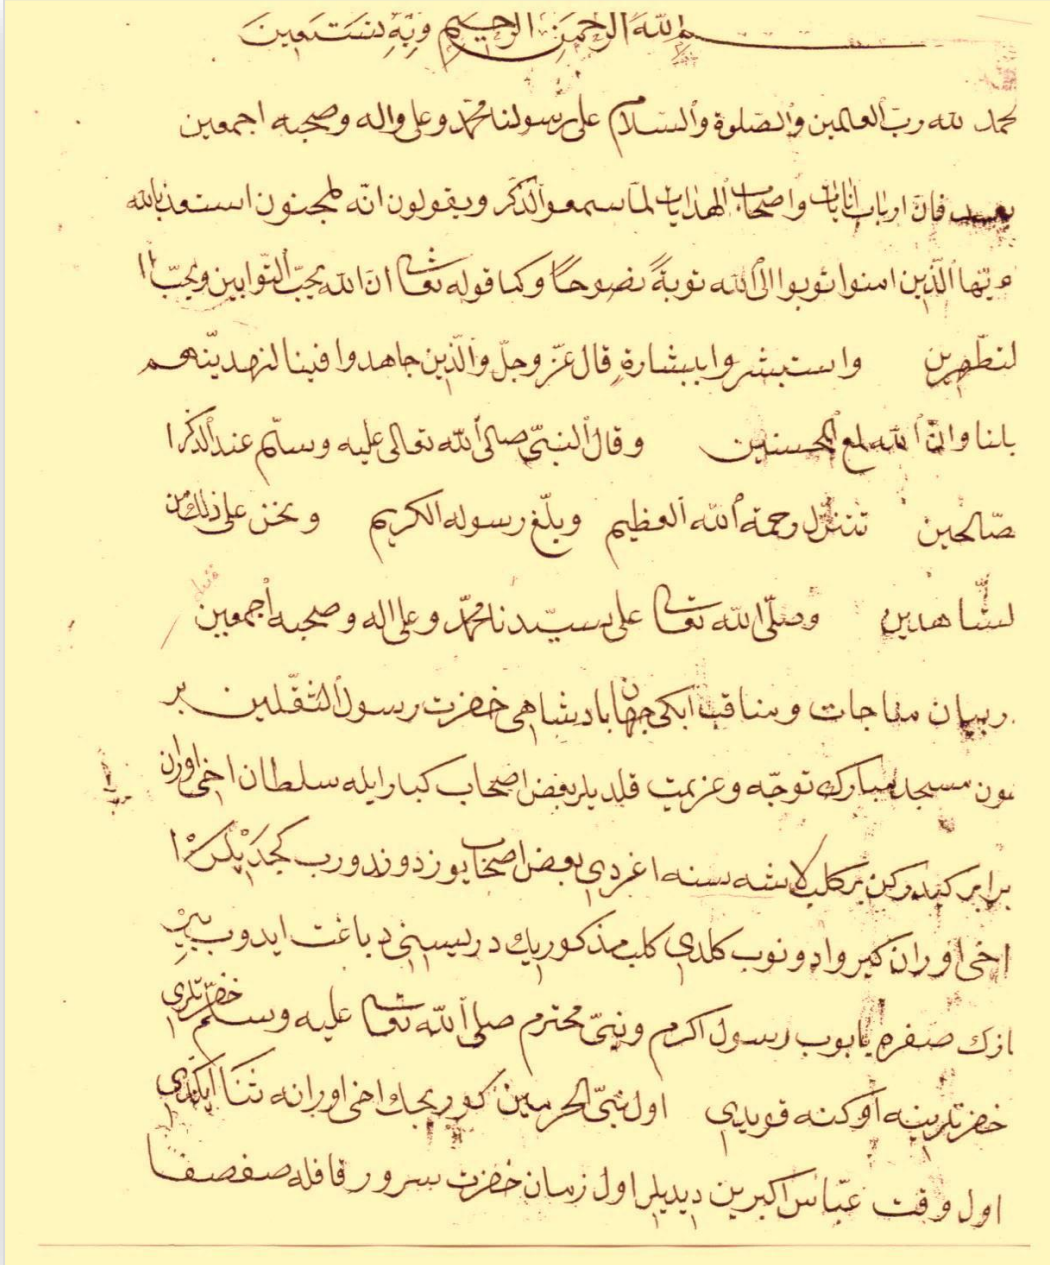 بسم الله الرحمن الرحيم وبه نستعين
لحمد لله رب العالمين والصلوة والسلام على رسولنا محمد وعلى واله وصحبه اجمعين
بعد فان ارباب واصحاب الهدايات لما سمعوا الذكر ويقولون انه لمجنون استعذ بالله
الذين امنوا توبوا الى الله توبة نصوحا وكما قوله تعالى ان الله يحب التوابين ويحب ا
لتطهرين واستبشروا ببشارة قال عز وجل والذين جاهدوا فينا لنهدينهم
بلنا وان الله لمع المحسنين وقال النبي صلى الله تعالى عليه وسلم عند الذكر ا
صالحين تتنزل رحمة الله العظيم وبلغ رسوله الكريم ونحن على ذلك من
لشاهدين وصلى الله تعالى على سيدنا محمد وعلى اله وصحبه اجمعين
ربيان مناجات ومناقب ايكى جهان بادشاهى حضرت رسول الثقلين بر
ون مسجد مبارك توجه وعزيمت قلديلر بعض اصحاب كبار ايله سلطان اخى اوران
برابر كيدركن بر كلب لاشه سنه اغردى بعض اصحاب يوز دوندورب
اخى اوران كيرو دونوب كلدى كلب مذكورك دريسنى دباغت ايدوب بر
نازك صفره يابوب رسول اكرم ونبى محترم صلى الله تعالى عليه وسلم حضرتلرى
حضرتلرينه اوكنه قويدى اول نبى الحرمين كوريجك اخى اورانه ثنا ايكندى
اول وقت عباس اكبرين ديديلر اول زمان حضرت سرور قافله صفصفا